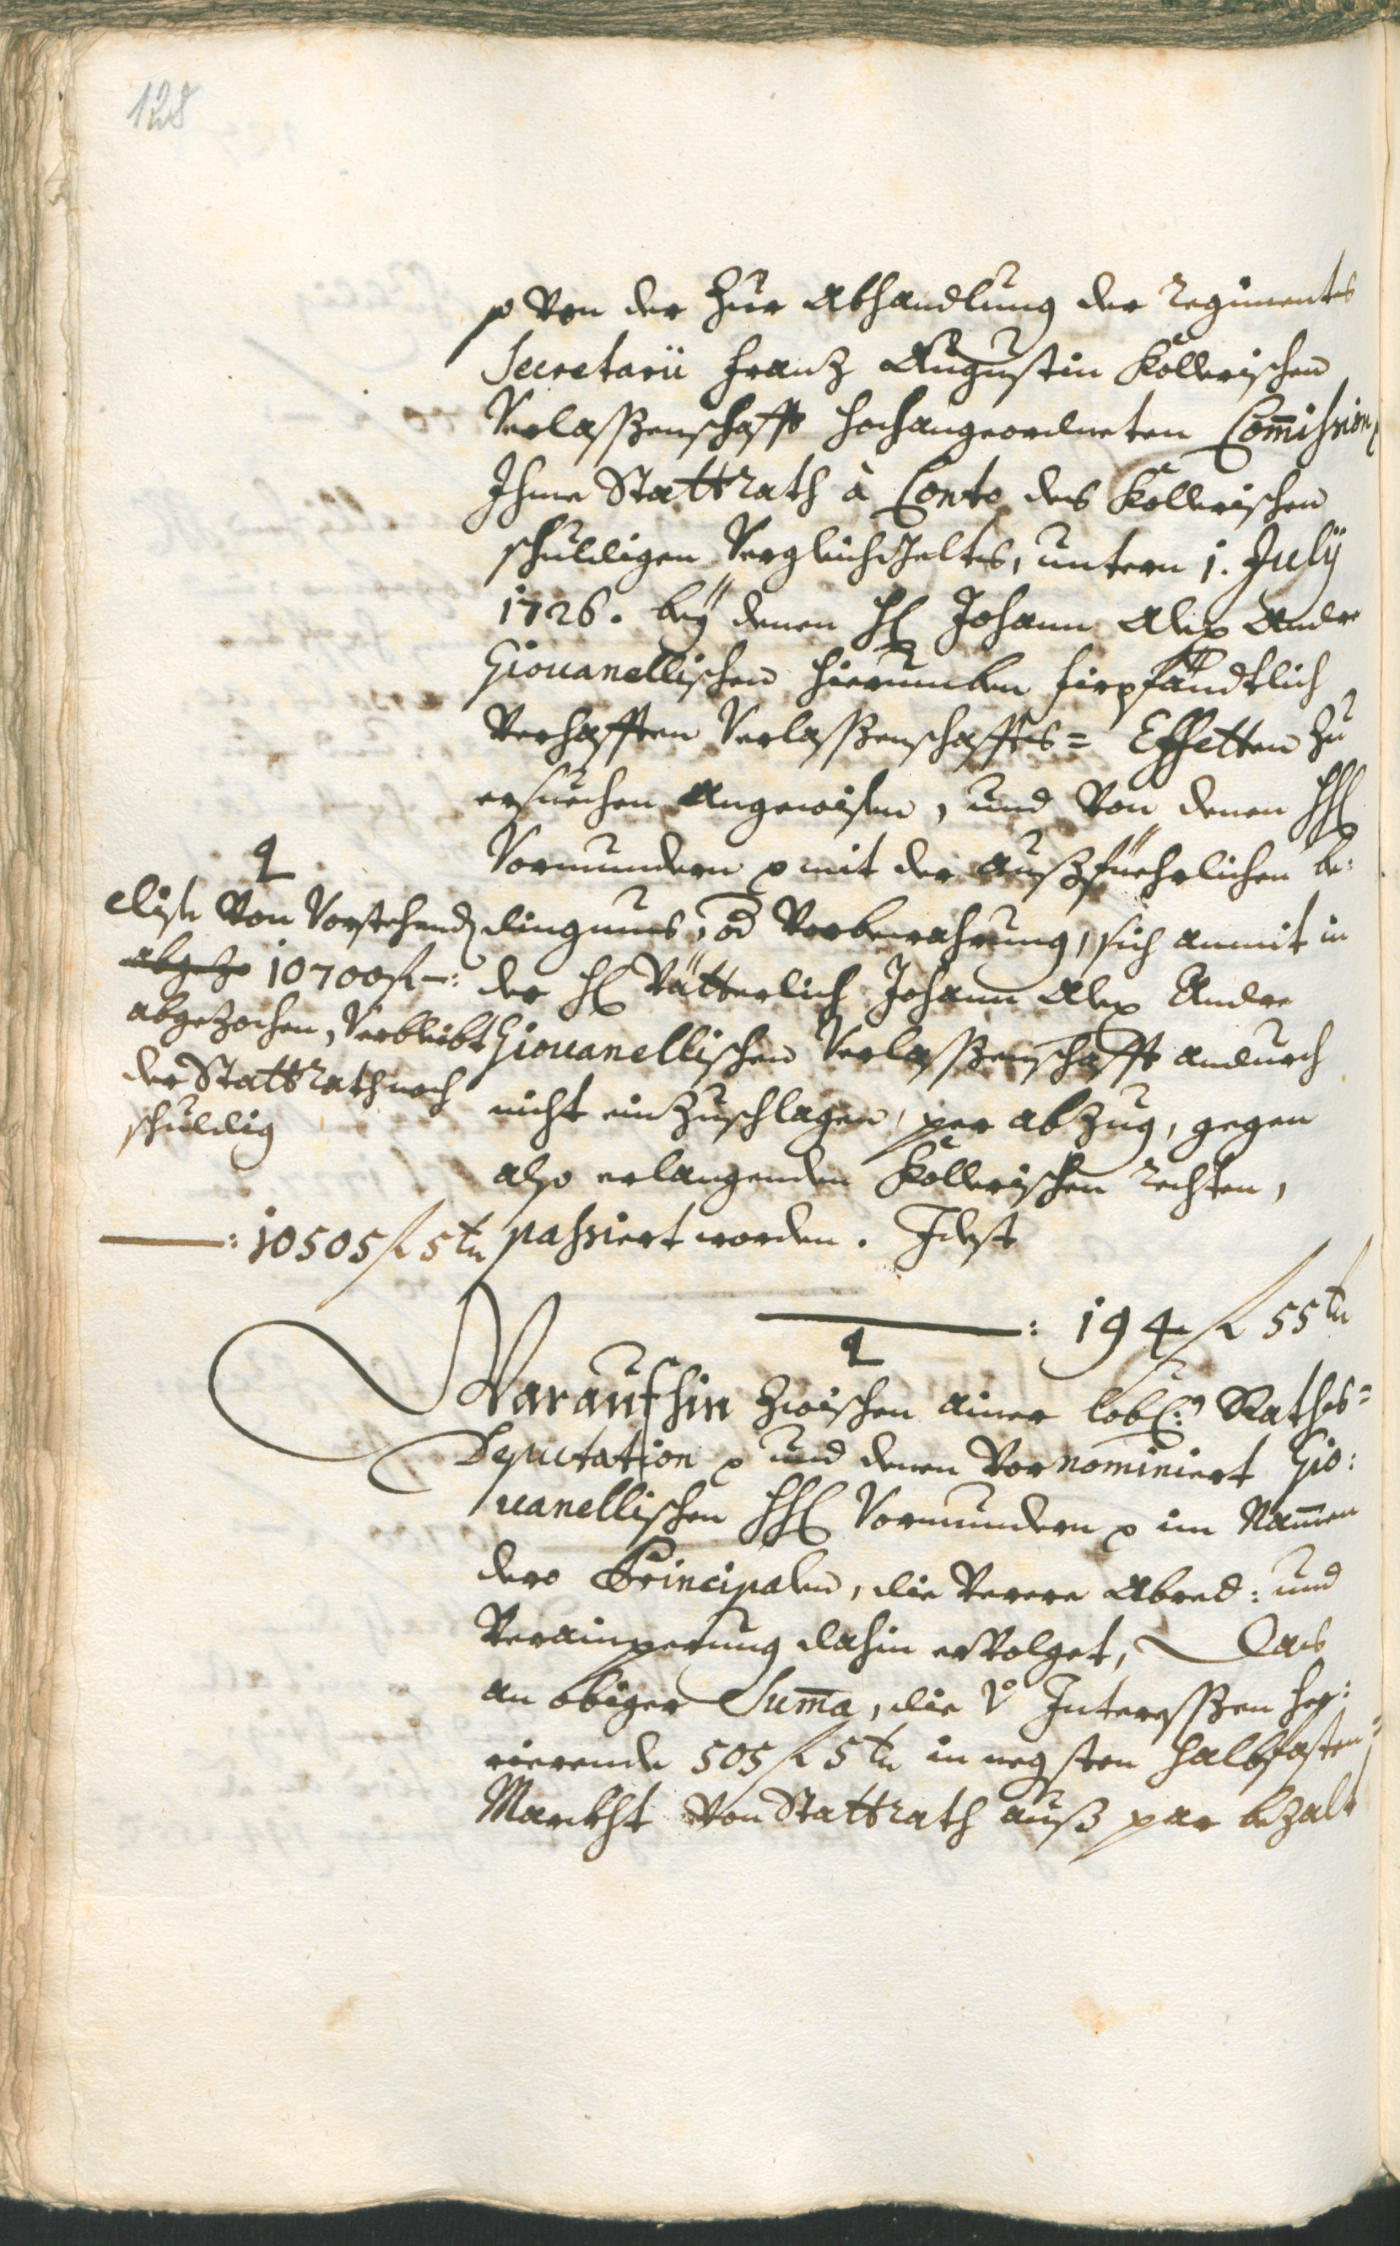 128
p von der zur Abhandlung der Regiments
Secretarii Franz Augustin Kollerischen
Verlassenschafft hochangeordneten Com̅ission,
Ihme Stattrath à Conto des Kollerischen
schuldigen Verglichgeltes, untern 1. Julÿ
1726. beÿ denen H: Johann Alex Andre
Giouanellischen hierumben fürpfändtlich
verhafften Verlassenschaffts= Effetten zu
ersuechen angewisen, und von denen HH:
Vormundern p mit der außfüehrlichen be:
dingnus, od Vorbewahrung, sich anmit in
der H: Vätterlich Johann Alex Andre
Giouanellischen Verlassenschafft andurch
nicht einzuschlagen, per abzug, gegen
also erlangenden Kollerischen rechten,
passiert worden. Idest
——: 194 fl 55 kr
dise von Vorstehend
abgezo 10700 fl —:
abgezochen, Verbleibt
der Stattrath noch
schuldig
——: 10505 fl 5 kr
Woraufhin zwischen ainer lobl: Raths=
Deputation p und denen vornominiert Gio:
uanellischen HH: Vormundern p im Nam̅en
dero Principalen, die verere Abred: und
Verainperung dahin ervolget, Das
an obiger Sum̅a, die võ Interessen her:
rierende 505 fl 5 kr in negsten Halbfasten=
Marckht von Stattrath auß par bezalt